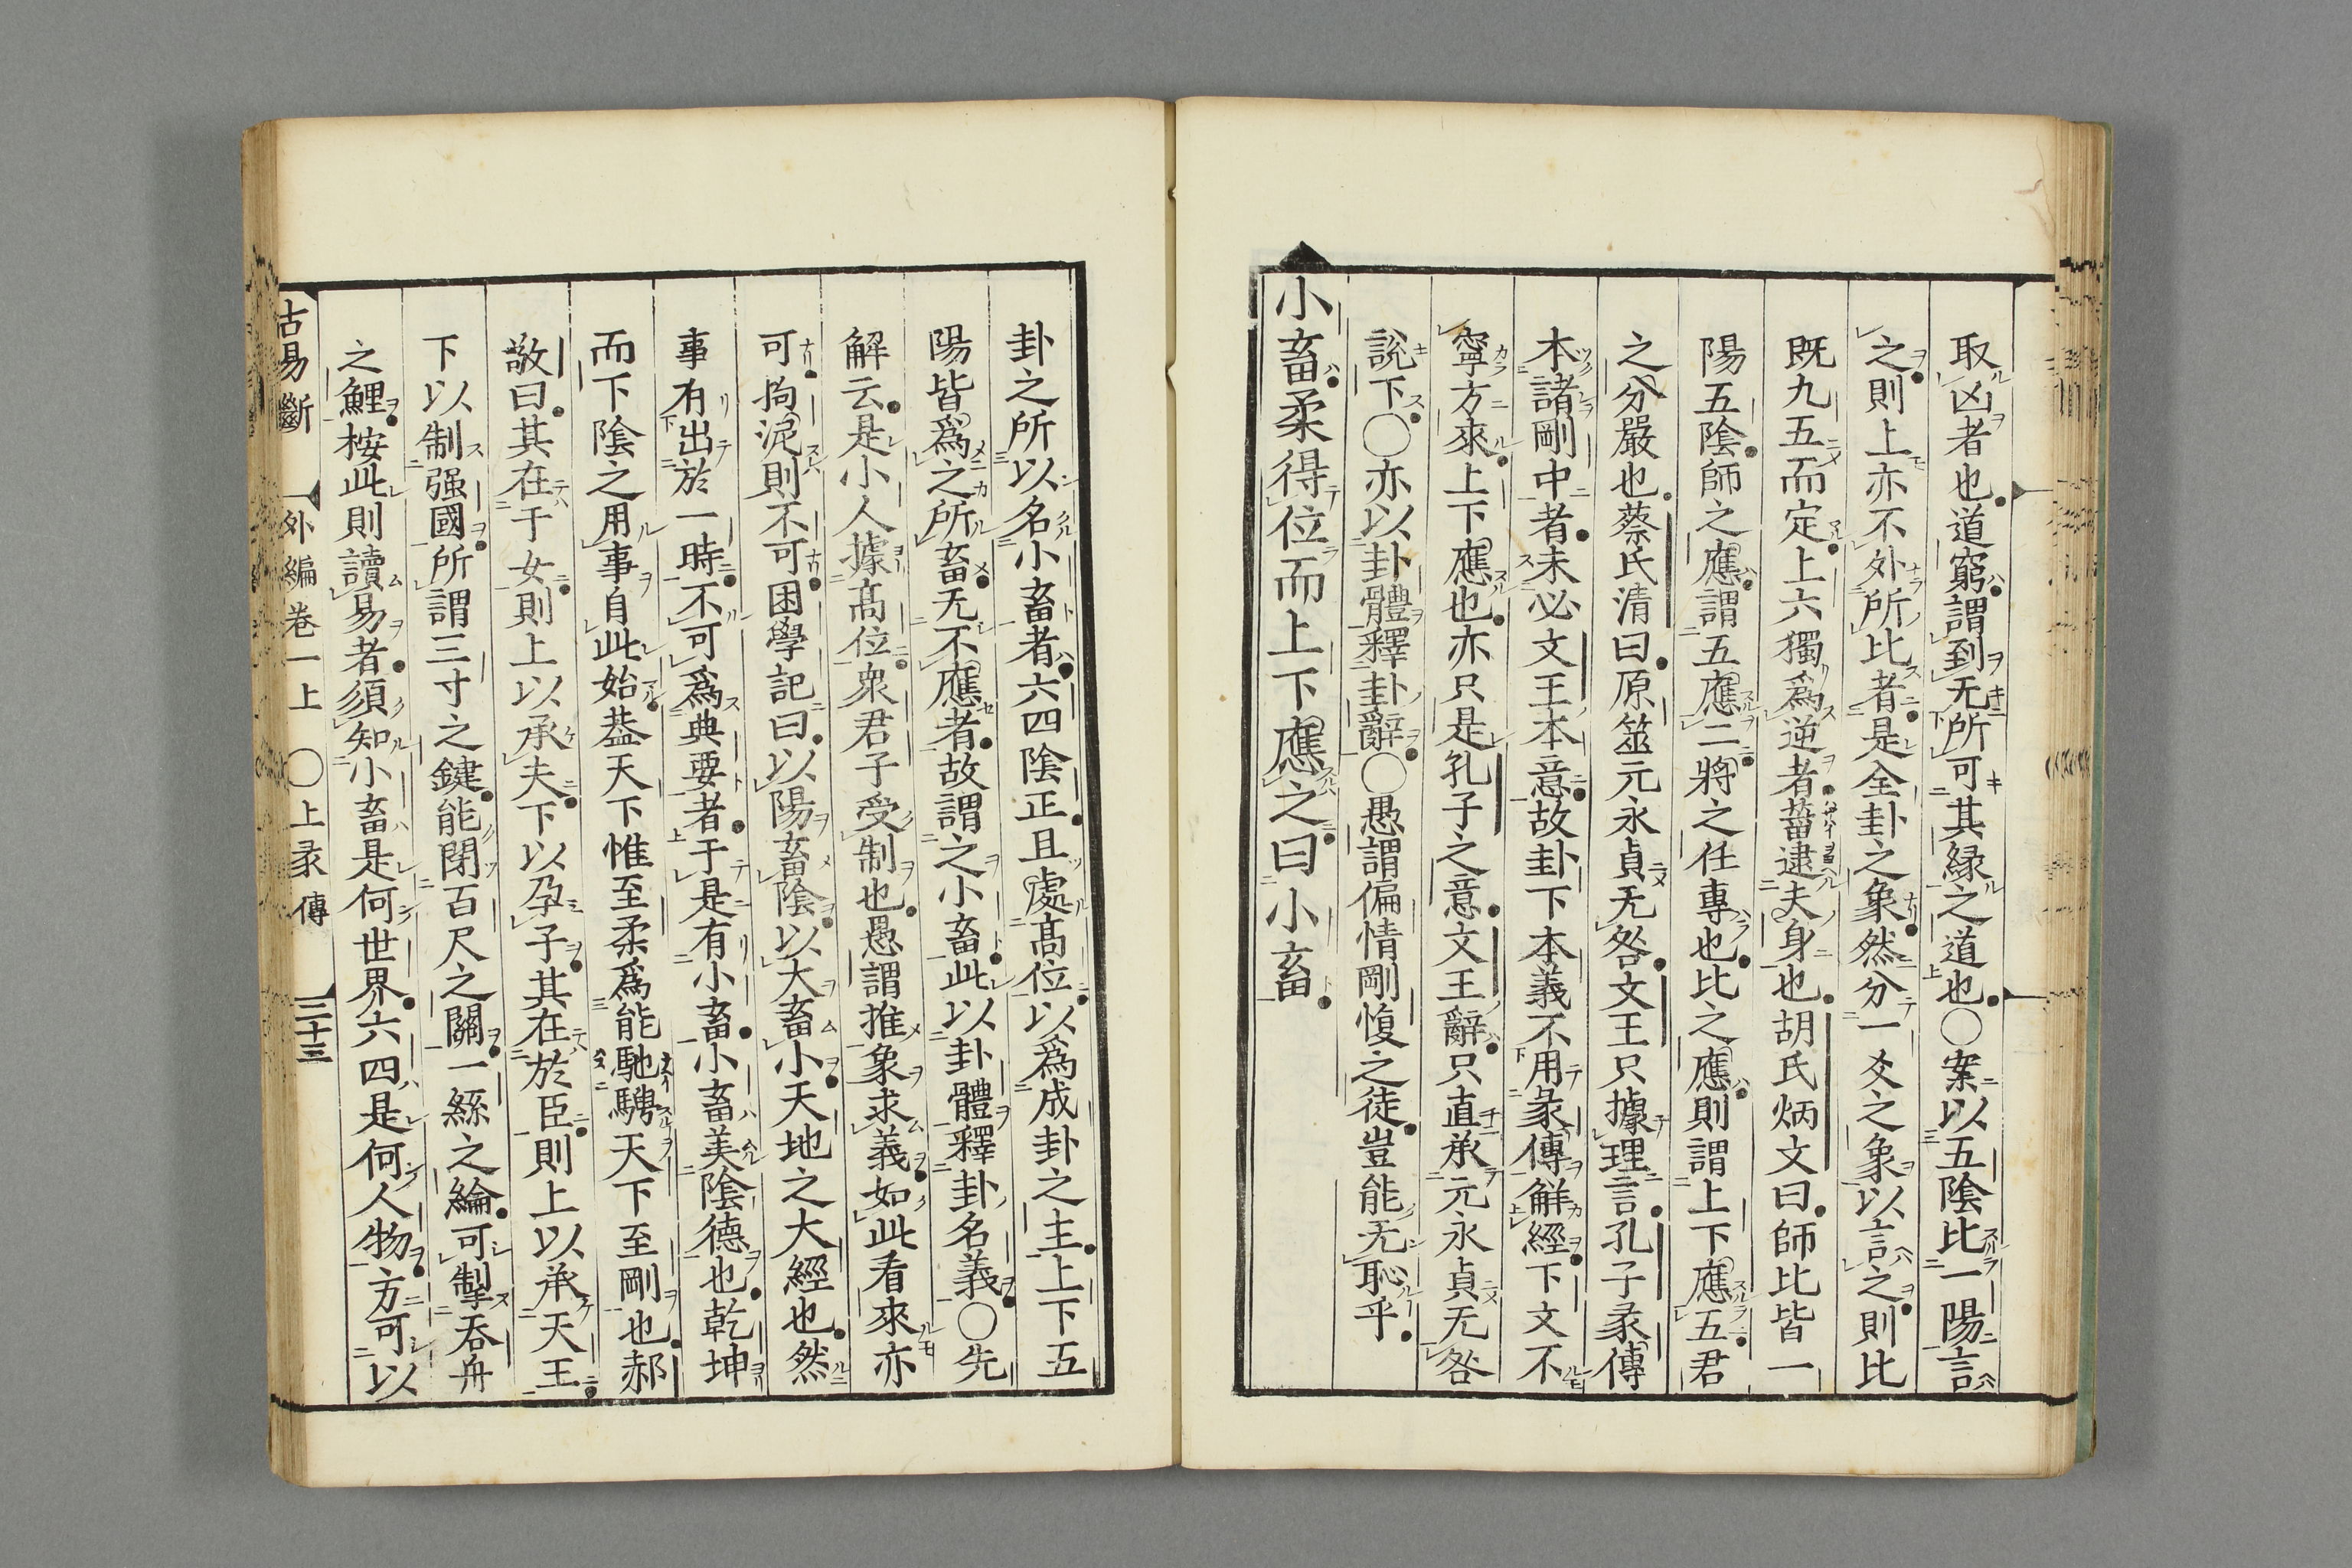 取凶者也道窮謂到无所可其縁之道也〇案以五陰比一陽言
之則上亦不外所比者是全卦之象然分一爻之象以言之則比
既九五而定上六獨爲逆者菑逮夫身也胡氏炳文曰師比皆一
陽五陰師之應謂五應二將之任專也比之應則謂上下應五君
之分嚴也蔡氏清曰原筮元永貞无咎文王只據理言孔子彖傳
本諸剛中者未必文王本意故卦下本義不用彖傳解經下文不
寧方來上下應也亦只是孔子之意文王辭只直承元永貞无咎
說下〇亦以卦體釋卦辭〇愚謂偏情剛愎之徒豈能无恥乎
小畜柔得位而上下應之曰小畜
卦之所以名小畜者六四陰正且處高位以爲成卦之主上下五
陽皆爲之所畜无不應者故謂之小畜此以卦體釋卦名義〇先
解云是小人據高位衆君子受制也愚謂推象求義如此看來亦
可拘泥則不可困學記曰以陽畜陰以大畜小天地之大經也然
事有出於一時不可爲典要者于是有小畜小畜美陰德也乾坤
而下陰之用事自此始葢天下惟至柔爲能馳騁天下至剛也郝
敬曰其在于女則上以承夫下以孕子其在於臣則上以承天王
下以制强國所謂三寸之鍵能閉百尺之關一絲之綸可掣吞舟
之鯉桉此則讀易者須知小畜是何世界六四是何人物方可以
古易斷 外編卷一上 〇上彖傳 三十三